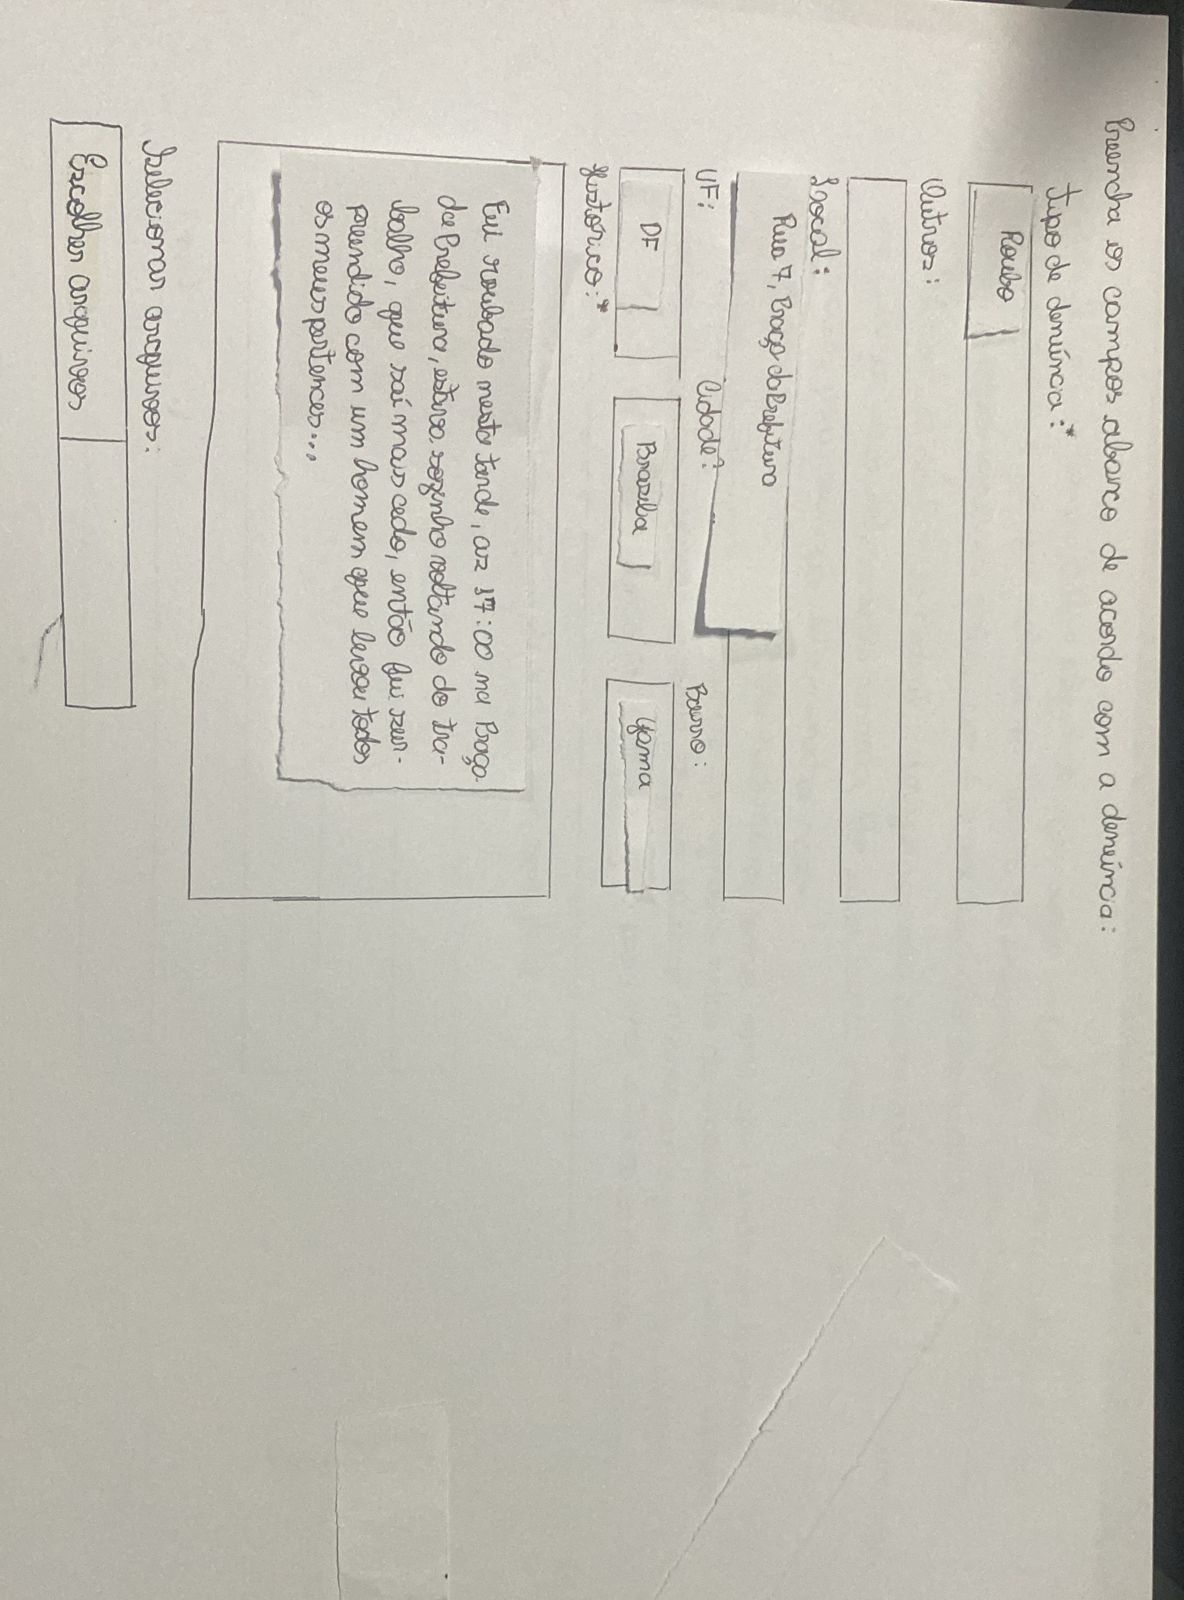 Preencha os campos abaixo de acordo com a denúncia:
Tipo de denúncia:*
Roubo
Outros:
Local:
Rua 7, Praça da Prefeitura
UF:
Cidade:
Bairro:
DF
Brasília
Gama
Histórico:*
Fui roubado nesta tarde, as 17:00 na Praça
da Prefeitura, estava sozinho voltando do tra-
balho, que saí mais cedo, então fui sur-
preendido com um homem que levou todos
os meus pertences...
Selecionar arquivos:
Escolher arquivos